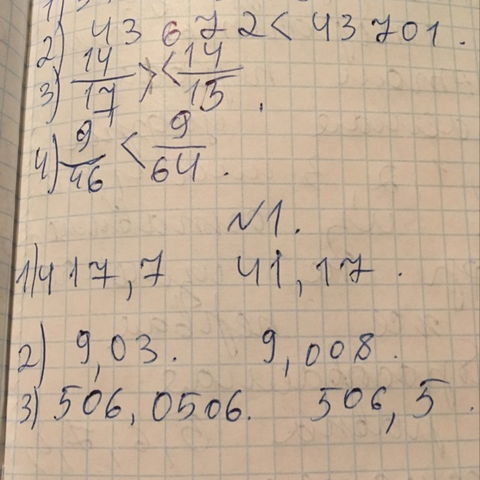 2) 43 672 < 43 701.
3) 14/17 > < 14/15.
4) 9/46 < 9/64.
№1.
1) 417,7 41,17.
2) 9,03. 9,008.
3) 506,0506. 506,5.